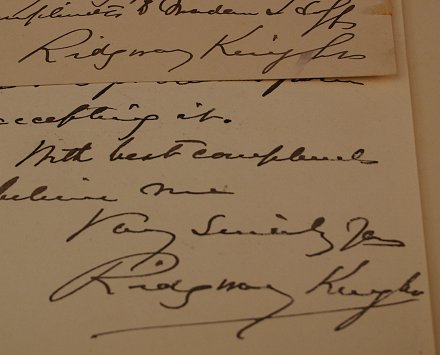 compliments to Madam
Ridgway Knight
accepting it.
With best compliments
believe me
Very Sincerely Yours
Ridgway Knight